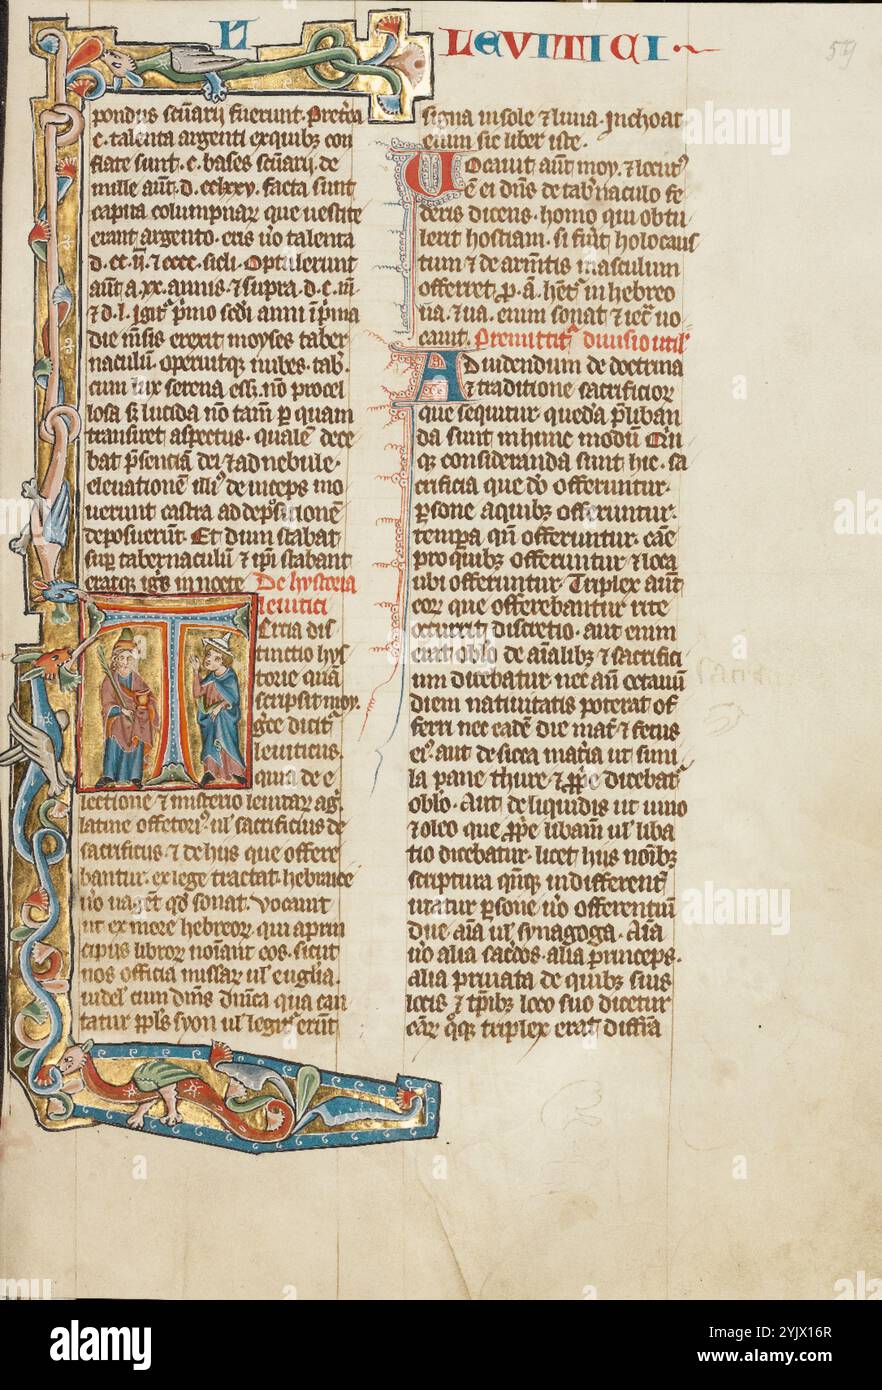 H LEVITICI
59
pondus scuarij fuerunt. Pretea
c. talenta argenti ex quibz con
flate sunt. c. bases scuarij. de
mille aut. d. cclxxv. facta sunt
capita columpnaꝝ que uestite
erant argento. eris uo talenta
Optulerunt
aut a.xx. annis. ⁊ supra.
die msis erexit moyses taber
naculu. operuitqz nubes. tab.
cum lux serena ess. no procel
losa s; lucida no tam p quam
transiret aspectus. quale dece
bat psencia dei. ⁊ ad nebule.
eleuatione illis de inceps mo
uerunt castra ad depositione
deposuerut. Et dium stabat
sup tabernaculu ⁊ ipi stabant
eratqz ignis in nocte De hystoria
leuitici
Tercia dis
tinctio hys
torie qua
scripsit moy.
grece dicit
leuiticus.
quia de e
lectione ⁊ misterio leuitaꝝ agit.
latine offetoris. ul sacrificius de
sacrificiis. ⁊ de hiis que offere
bantur. ex lege tractat. hebraice
uo uagent qd sonat. vocauit
ut ex more hebreoꝝ. qui a prin
cipiis libroꝝ noiant eos. sicut
nos officia missaꝝ ul euglia.
uidel cum dms diuca qua can
tatur ppls syon ul legitur erunt
signa in sole ⁊ luna. Inchoat
enim sic liber iste.
Vocauit aut moy. ⁊ locutus
e ei dns de tabnaculo fe
deris dicens. homo qui obtu
lerit hostiam. si fuit holocaus
tum ⁊ de armtis masculum
offerret. p. a. het in hebreo
ua. ⁊ ua. enim sonat ⁊ iet uo
cauit. Premittit diuisio util
Ad uidendum de doctrina
⁊ traditione sacrificioꝝ
que sequitur. queda pliban
da sunt in hunc modu
qz consideranda sunt hic. sa
crificia que do offeruntur.
psone a quibz offeruntur.
tempa qn offeruntur. cae
pro quibz offeruntur ⁊ loca
ubi offeruntur. Triplex aut
eoꝝ que offerebantur rite
occurrit discretio. aut enim
erat oblo de aialibz ⁊ sacrifici
um dicebatur nec an octauu
diem natiuitatis poterat of
ferri nec eade die mat ⁊ fetus
eis. aut de sicca matia ut simi
la pane thure. ⁊ ppe dicebat
oblo. Aut de liquidis ut uino
⁊ oleo que ppe libam ul liba
tio dicebatur. licet hiis noibz
scriptura qnqz indifferent
utatur psone uo offerentiu
due. aia ul synagoga. Aia
uo alia sacdos. alia princeps.
alia priuata de quibz suis
locis ⁊ tpibz loco suo dicetur
caꝝ qqz triplex erat diffia
alamy
Image ID: 2YJX16R
www.alamy.com